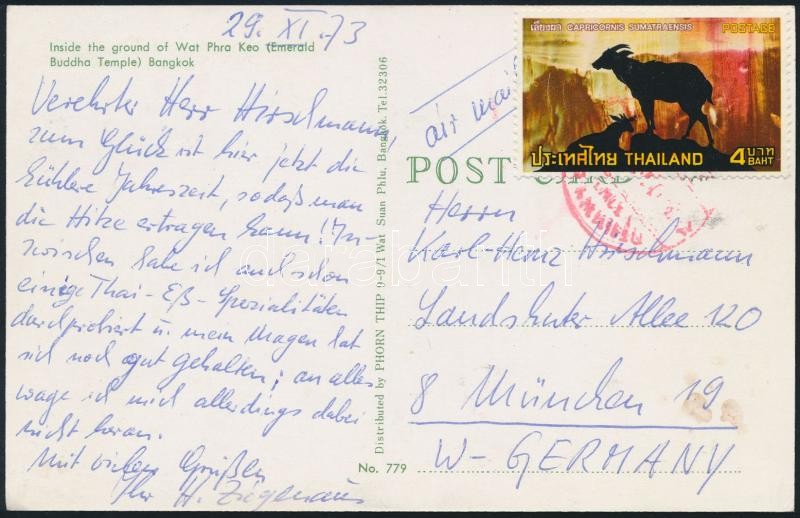 29. XI. 73
Inside the ground of Wat Phra Keo (Emerald
Buddha Temple) Bangkok
Verehrter Herr Hirschmann,
zum Glück ist hier jetzt die
kühlere Jahreszeit, sodaß man
die Hitze ertragen kann! In-
zwischen habe ich auch schon
einige Thai-Eß-Spezialitäten
durchprobiert u. mein Magen hat
sich noch gut gehalten; an alles
wage ich mich allerdings dabei
nicht heran.
Mit vielen Grüßen
Ihr H. Ziegenaus
Distributed by PHORN THIP 9-9/1 Wat Suan Phlu, Bangkok. Tel. 32306
No. 779
air mail
POST CARD
เลียงผา CAPRICORNIS SUMATRAENSIS POSTAGE
ประเทศไทย THAILAND 4 บาท
BAHT
Herrn
Karl-Heinz Hirschmann
Landshuter Allee 120
8 München 19
W-GERMANY
darabanth